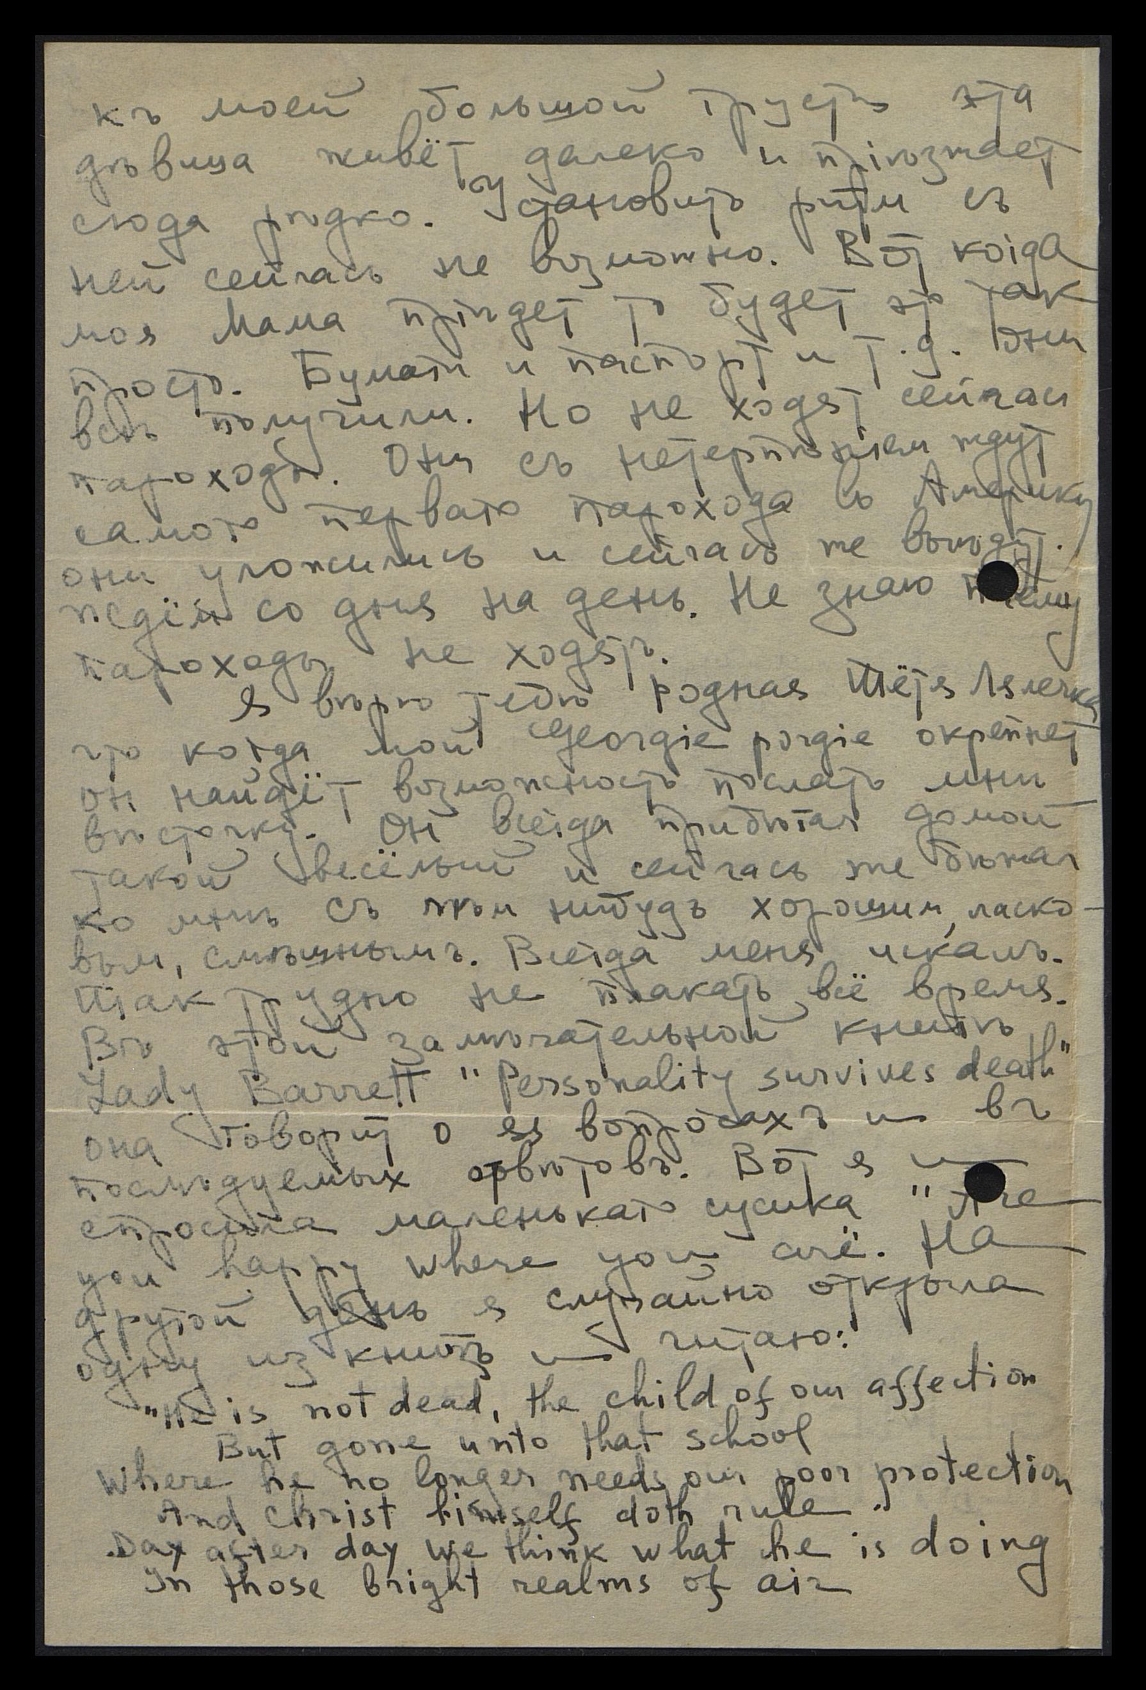 къ моей большой грусти эта
дѣвица живёт далеко и пріѣзжает
сюда рѣдко. Установить ритм съ
ней сейчасъ не возможно. Вот когда
моя Мама пріѣдет то будет это так
просто. Бумаги и паспорт и т.д. они
всѣ получили. Но не ходят сейчасъ
пароходы. Они съ нетерпѣніем ждут
самого перваго парохода въ Америку
они уложились и сейчасъ же выѣдут.
Ждём со дня на день. Не знаю почему
пароходы не ходятъ.
Я вѣрю тебѣ родная Тётя Лялечка
что когда мой Georgie porgie окрепнет
он найдёт возможность послать мнѣ
вѣсточку. Он всегда прибѣгал домой
такой весёлый и сейчасъ же бѣжал
ко мнѣ съ чѣм нибудь хорошим, ласко-
вым, смѣшнымъ. Всегда меня искалъ.
Так трудно не плакать всё время.
Въ этой замѣчательной книгѣ
Lady Barrett "Personality survives death"
она говорит о ея вопросахъ и въ
послѣдуемых отвѣтовъ. Вот я и
спросила маленькаго сусика "Are
you happy where you are. На
другой день я случайно открыла
одну из книгъ и читаю:
"He is not dead, the child of our affection
But gone unto that school
Where he no longer needs our poor protection
And Christ himself doth rule.
Day after day we think what he is doing
In those bright realms of air